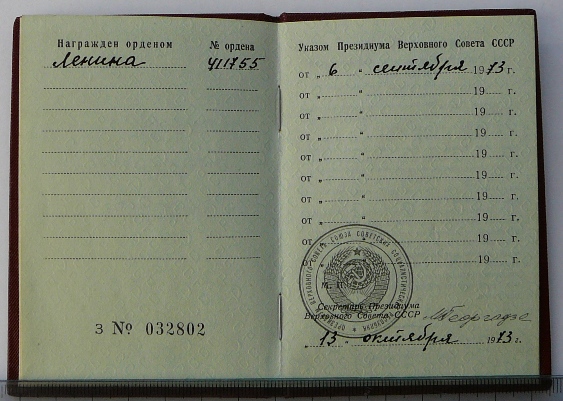 Награжден орденом № ордена
Ленина 411755
З № 032802
Указом Президиума Верховного Совета СССР
от „ 6 “ сентября 1973 г.
от „ “ 19 г.
от „ “ 19 г.
от „ “ 19 г.
от „ “ 19 г.
от „ “ 19 г.
от „ “ 19 г.
от „ “ 19 г.
от „ “ 19 г.
от „ “ 19 г.
М. П.
Секретарь Президиума
Верховного Совета СССР МГеоргадзе
„ 13 “ октября 1973 г.